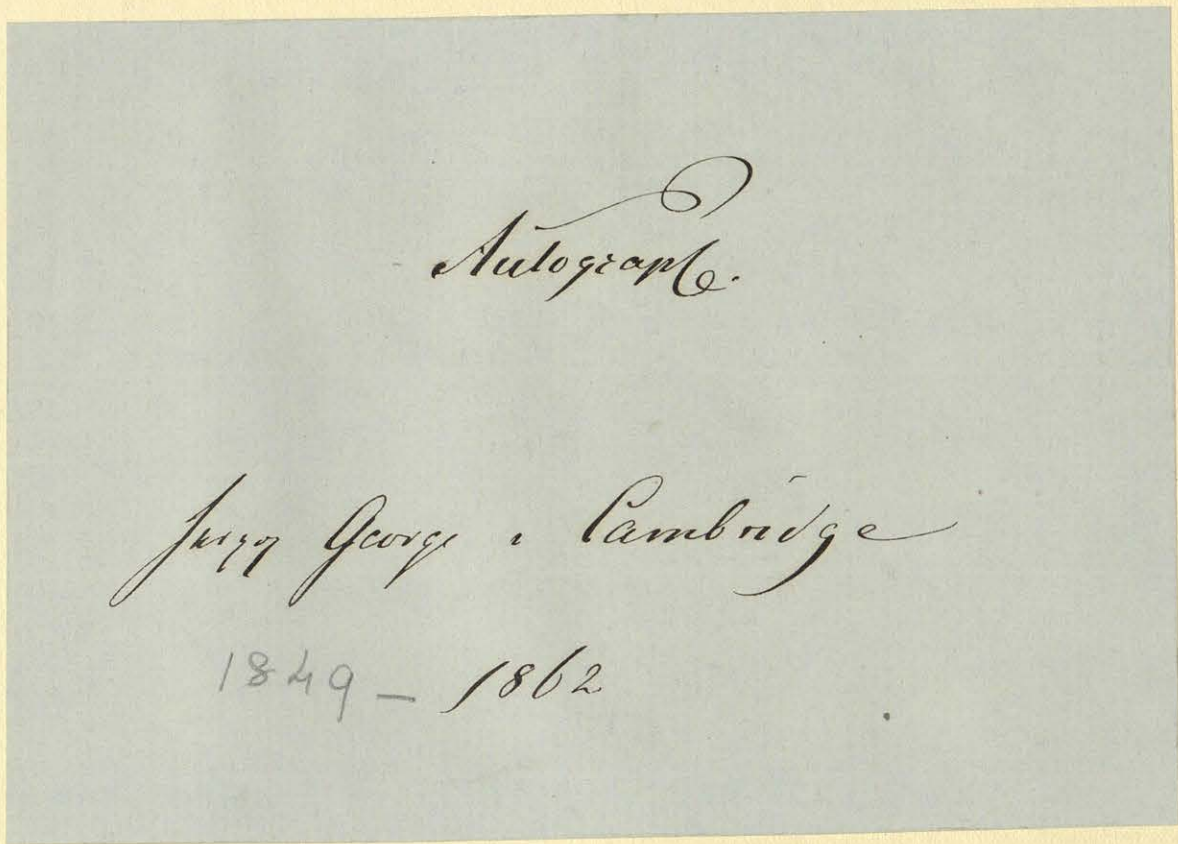 Autograph.
Herzog George v Cambridge
1849 – 1862